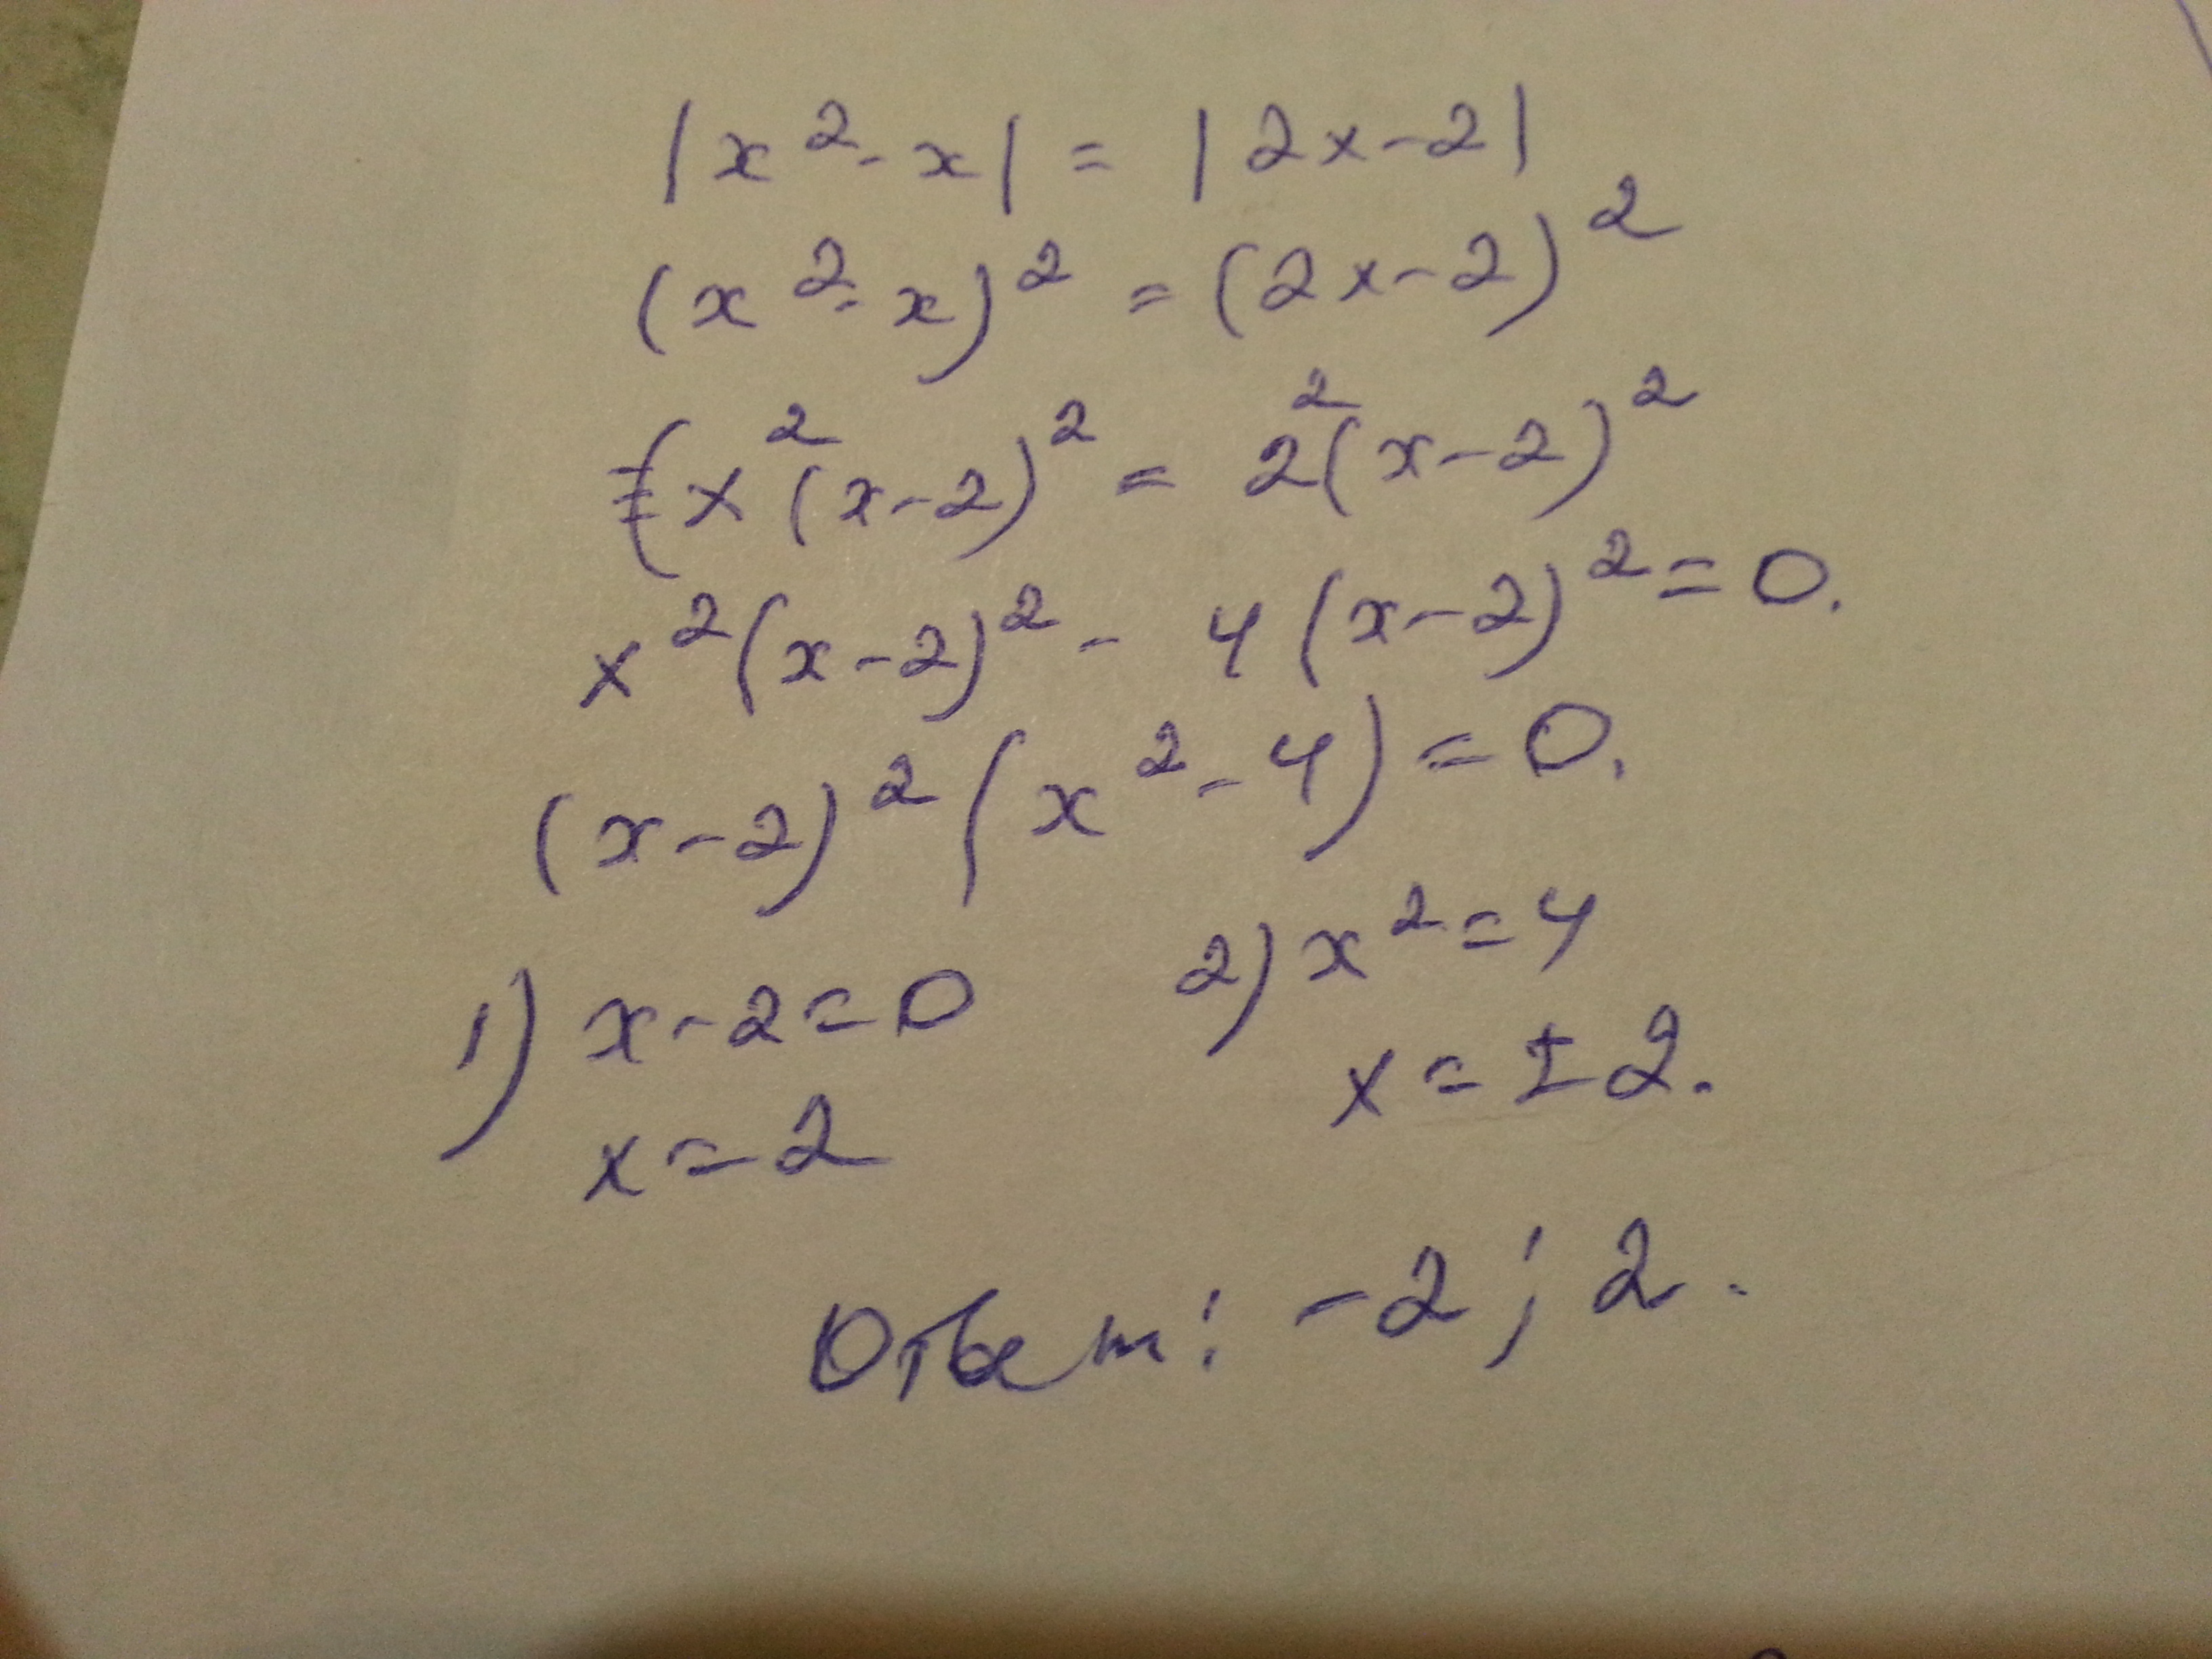 |x² - x| = |2x - 2|
(x² - x)² = (2x - 2)²
x²(x - 2)² = 2²(x - 2)²
x²(x - 2)² - 4(x - 2)² = 0.
(x - 2)²(x² - 4) = 0.
1) x - 2 = 0 2) x² = 4
x = 2 x = ± 2.
Ответ: -2; 2.